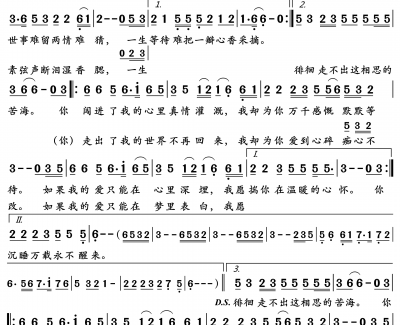 3·6 5 3 2 2 6 1 | 2 - - 0 5 3 | 2 1 5 5 5 2 1 2 | 1·6 6 - 0 :‖ 5 3 2 3 5 5 5 5 5 5
世事难留两情难 猜， 一生等待难把一瓣心香采摘。
0 2 3
素弦声断泪湿香 腮， 一生 徘徊走不出这相思的
3 6 6 - 0 3 ‖: 6 6 5 6·i 6 5 | 3 5 1 2 1 6 6 1 | 2 2 3 5 5 5 6 5 3 2
苦海。 你 闯进了我的心里真情灌 溉，我却为你万千感慨 默默等
5 3 2
(你) 走出了我的世界不再回 来，我却为你爱到心碎 痴心不
3 - - 0 3 5 | 6 6 5 6·i 6 5 | 3 5 1 2 1 6 6 1 | 2 2 3 5 5 5 5· | 3 - - 0 3 :‖
待。 如果我的爱只能在 心里深 埋，我愿搞你在温暖的心 怀。 你
改。 如果我的爱只能在 梦里表 白，我愿
II.
2 2 2 3 5 5 5 | 6 - - (6 5 3 2 | 3 - - 6 5 3 2 | 3 - - 6 5 3 2 | 3 - - 2 3 5 | 5 6 6 1 7·1 7 2
沉睡万载永不醒来。
6·5 6 7·i 7 6 | 5 3 2 1 - | 2 2 2 3 2 7 5 | 6 - - -) ‖ 5 3 2 3 5 5 5 5 5 5 | 3 6 6 - 0 3
D.S. 徘徊走不出这相思的苦海。 你
‖: 6 6 5 6·i 6 5 | 3 5 1 2 1 6 6 1 | 2 2 3 5 5 5 6 5 3 2